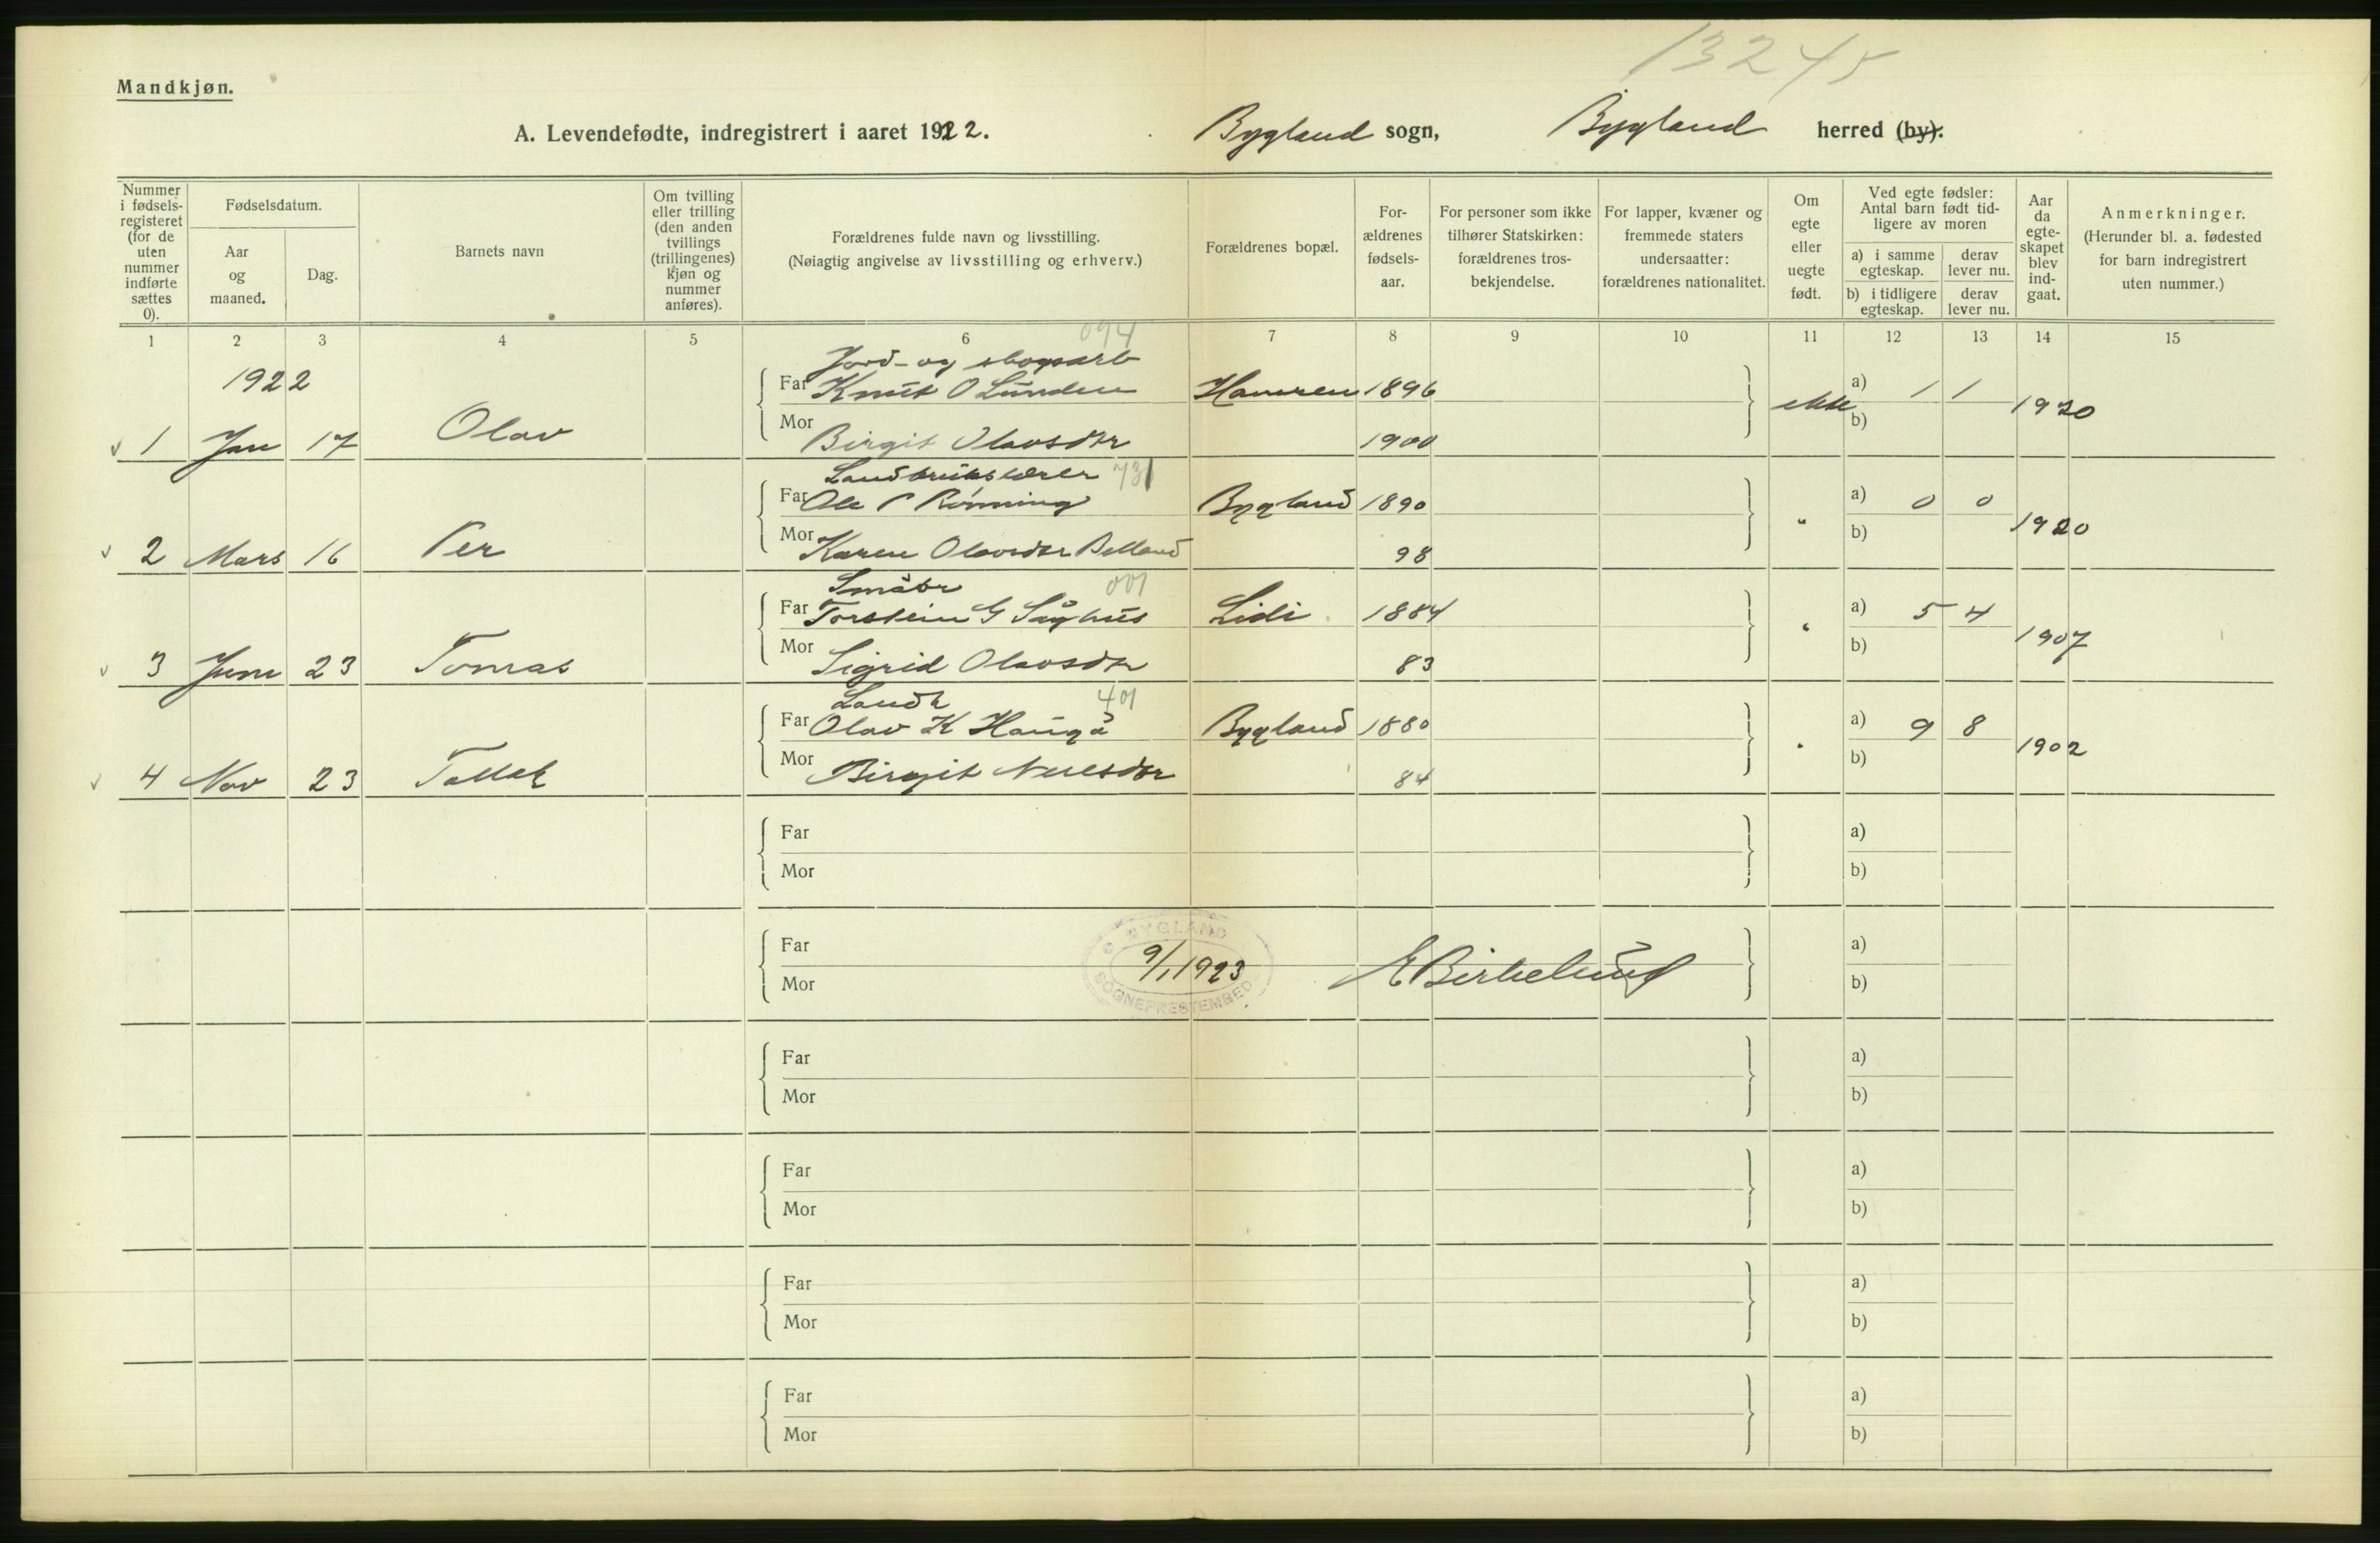 13245
Mandkjøn.
A. Levendefødte, indregistrert i aaret 1922. Bygland sogn, Bygland herred (by).
Nummer i fødsels-registeret (for de uten nummer indførte sættes 0).
Fødselsdatum.
Aar og maaned.
Dag.
Barnets navn
Om tvilling eller trilling (den anden tvillings (trillingenes) kjøn og nummer anføres).
Forældrenes fulde navn og livsstilling.
(Nøiagtig angivelse av livsstilling og erhverv.)
Forældrenes bopæl.
For-ældrenes fødsels-aar.
For personer som ikke tilhører Statskirken: forældrenes tros-bekjendelse.
For lapper, kvæner og fremmede staters undersaatter: forældrenes nationalitet.
Om egte eller uegte født.
Ved egte fødsler: Antal barn født tid-ligere av moren
a) i samme egteskap.
derav lever nu.
b) i tidligere egteskap.
derav lever nu.
Aar da egte-skapet blev ind-gaat.
Anmerkninger.
(Herunder bl. a. fødested for barn indregistrert uten nummer.)
1 2 3 4 5 6 7 8 9 10 11 12 13 14 15
094
1922
Jord- og skogsarb
Far Knut O Lunden Hamren 1896 a) 1 1
1 Jan 17 Olav Mor Birgit Olavsdtr 1900 b) 1920
Landbrukslærer 731
Far Ole P Rönning Bygland 1890 " a) 0 0
2 Mars 16 Per Mor Karen Olavsdtr 98 b) 1920
Småbr 001
Far Torstein G Såghus Lidi 1884 " a) 5 4
3 Juni 23 Tomas Mor Sigrid Olavsdtr 83 b) 1907
401
Far Olav K Haugå Bygland 1880 " a) 9 8
4 Nov 23 Tallak Mor Birgit 84 b) 1902
Far a)
Mor b)
BYGLAND SOGNEPRESTEMBED
Far a)
9/1 1923 E Birkelund
Mor b)
Far a)
Mor b)
Far a)
Mor b)
Far a)
Mor b)
Far a)
Mor b)